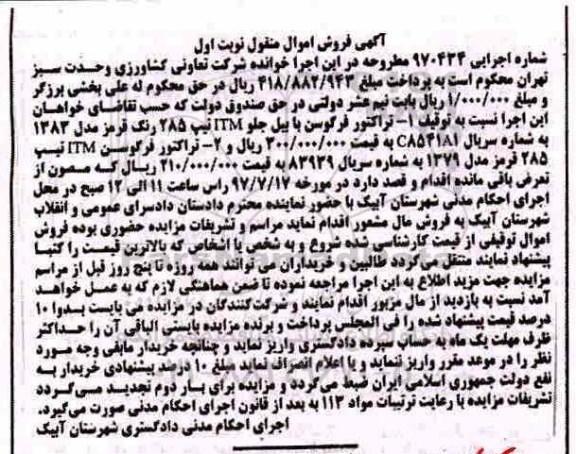 آگهی فروش اموال منقول نوبت اول
شماره اجرایی ۹۷۰۴۳۴ مطروحه در این اجرا خوانده شرکت تعاونی کشاورزی وحدت سبز
تهران محکوم است به پرداخت مبلغ ۴۱۸/۸۸۲/۹۴۳ ریال در حق محکوم له علی بخشی برزگر
و مبلغ ۱/۰۰۰/۰۰۰ ریال بابت نیم عشر دولتی در حق صندوق دولت که حسب تقاضای خواهان
این اجرا نسبت به توقیف ۱- تراکتور فرگوسن با بیل جلو ITM تیپ ۲۸۵ رنگ قرمز مدل ۱۳۸۳
به شماره سریال C۸۵۳۱۸۱ به قیمت ۳۰۰/۰۰۰/۰۰۰ ریال و ۲- تراکتور فرگوسن ITM تیپ
۲۸۵ قرمز مدل ۱۳۷۹ به شماره سریال ۸۳۹۳۹ به قیمت ۲۱۰/۰۰۰/۰۰۰ ریال که مصون از
تعرض باقی مانده اقدام و قصد دارد در مورخه ۹۷/۷/۱۷ راس ساعت ۱۱ الی ۱۲ صبح در محل
اجرای احکام مدنی شهرستان آبیک با حضور نماینده محترم دادستان دادسرای عمومی و انقلاب
شهرستان آبیک به فروش مال مشعور اقدام نماید مراسم و تشریفات مزایده حضوری بوده فروش
اموال توقیفی از قیمت کارشناسی شده شروع و به شخص یا اشخاص که بالاترین قیمت را کتبا
پیشنهاد نمایند منتقل می‌گردد طالبین و خریداران می توانند همه روزه تا پنج روز قبل از مراسم
مزایده جهت مزید اطلاع به این اجرا مراجعه نموده تا ضمن هماهنگی لازم که به عمل خواهد
آمد نسبت به بازدید از مال مزبور اقدام نمایند و شرکت‌کنندگان در مزایده می بایست بدوا ۱۰
درصد قیمت پیشنهاد شده را فی المجلس پرداخت و برنده مزایده بایستی الباقی آن را حداکثر
ظرف مهلت یک ماه به حساب سپرده دادگستری واریز نماید و چنانچه خریدار مابقی وجه مورد
نظر را در موعد مقرر واریز ننماید و یا اعلام انصراف نماید مبلغ ۱۰ درصد پیشنهادی خریدار به
نفع دولت جمهوری اسلامی ایران ضبط می‌گردد و مزایده برای بار دوم تجدید می‌گردد
تشریفات مزایده با رعایت ترتیبات مواد ۱۱۳ به بعد از قانون اجرای احکام مدنی صورت می‌گیرد.
اجرای احکام مدنی دادگستری شهرستان آبیک